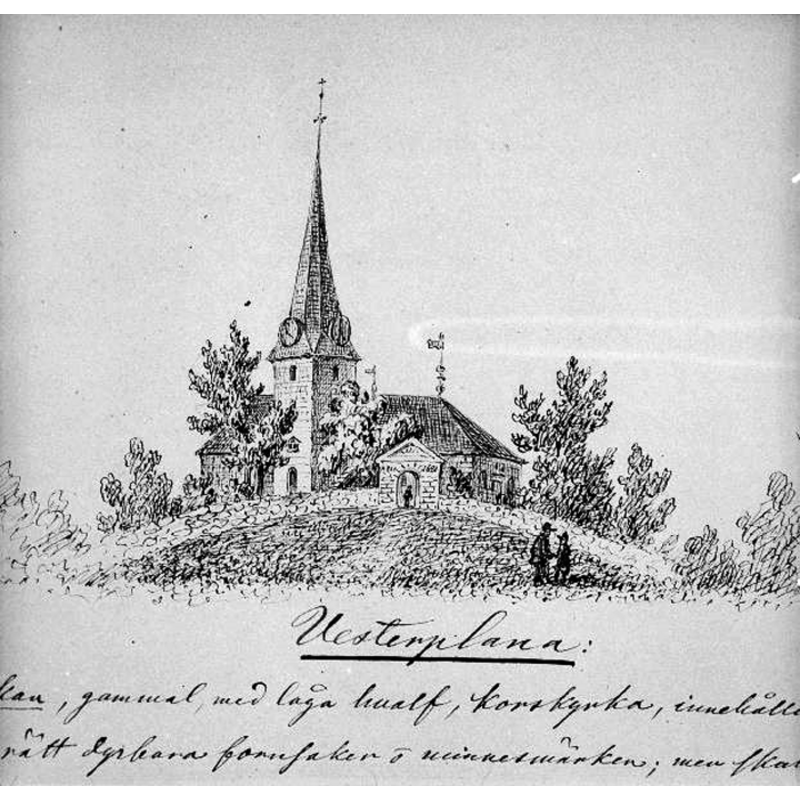 Vesterplana:
kan, gammal, med låga hvalf, korskyrka, innehålle
rätt dyrbara fornsaker o minnesmärken; men skal